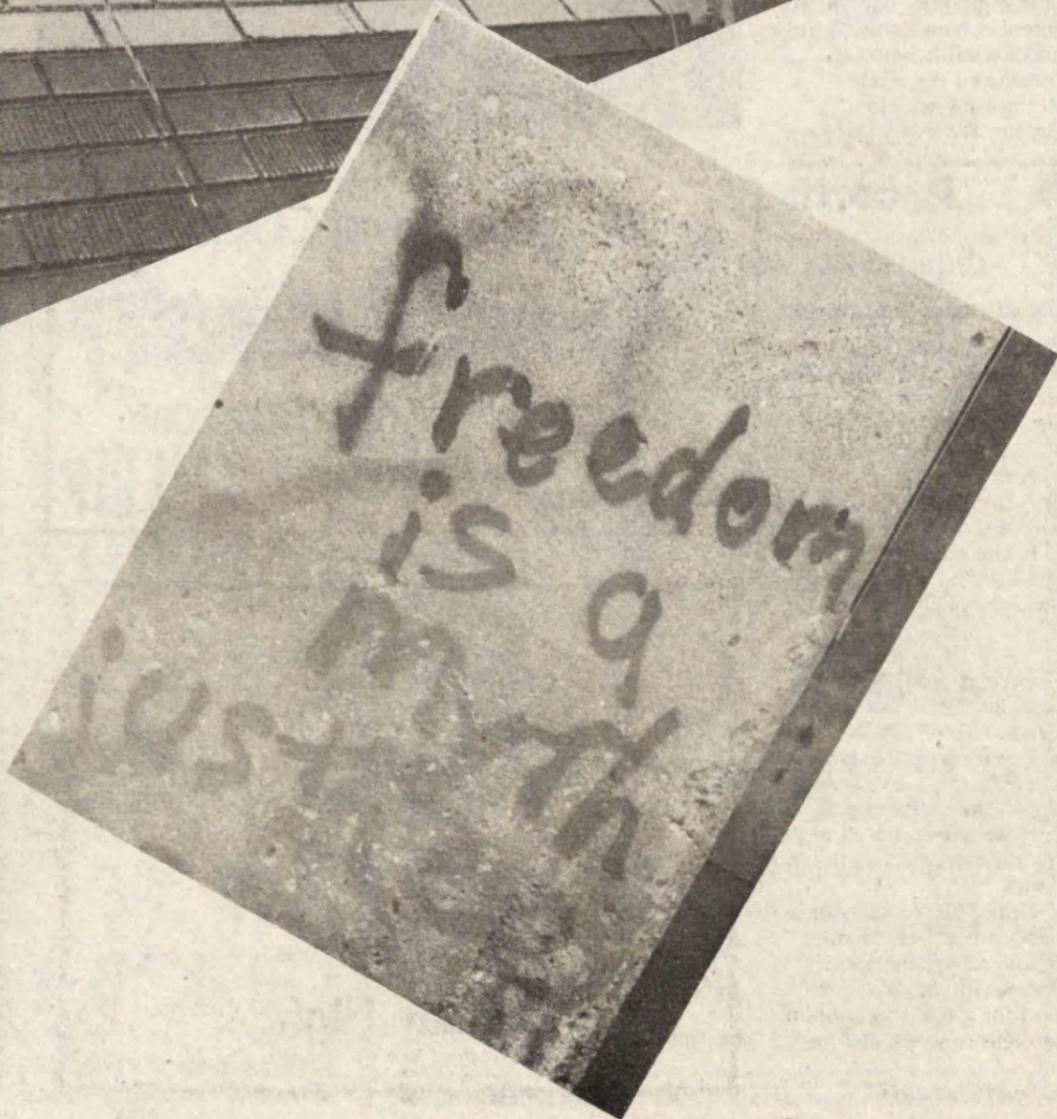 freedom
is a
myth
just